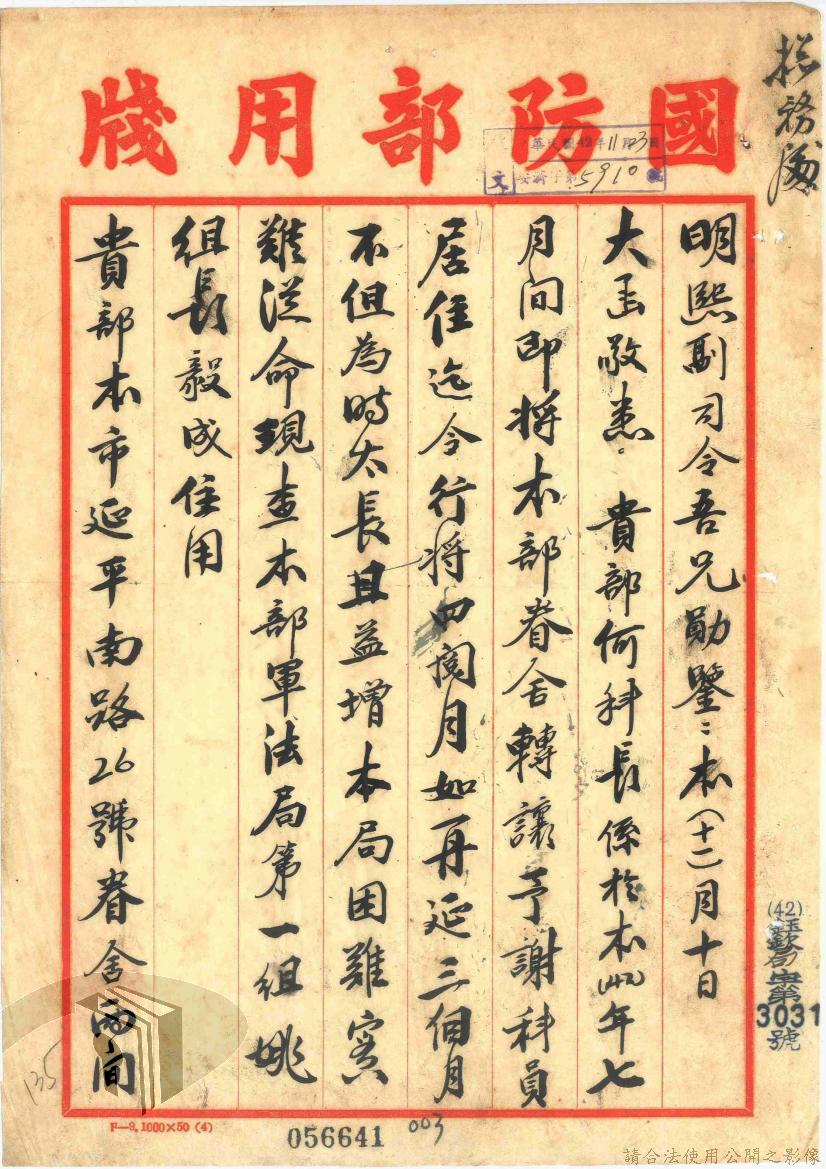 國防部用牋
總務處
華民國42年11月23日
文 字第5910號
明熙副司令吾兄勛鑒:本(十二)月十日
大函敬悉。貴部何科長係於本(42)年七
月間即將本部眷舍轉讓予謝科員
居住迄今行將四閱月如再延三個月
不但為時太長且益增本局困難實
難從命現查本部軍法局第一組姚
組長毅成住用
貴部本市延平南路26號眷舍兩間
(42)
3031
號
135
F—9.1000×50(4)
056641
003
請合法使用公開之影像